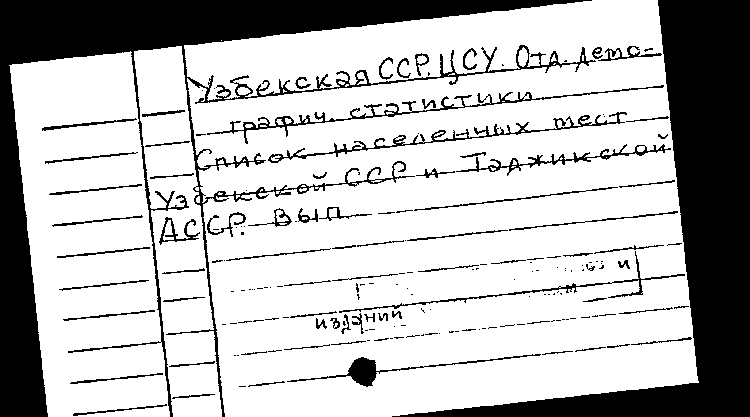 Узбекская ССР. ЦСУ. Отд. демо-
графич. статистики
Список населенных мест
Узбекской ССР и Таджикской
АССР. Вып
и
изданий